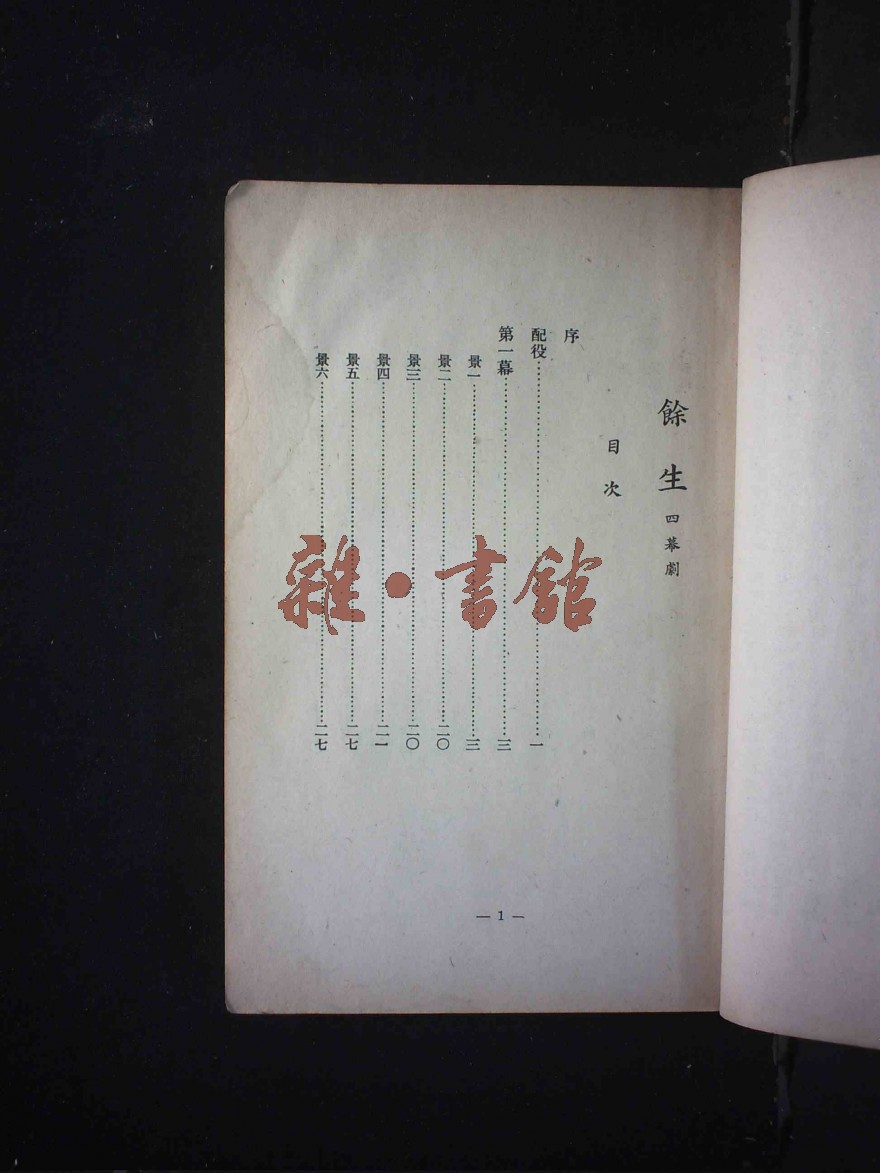 餘生 四幕劇
目次
序
配役……一
第一幕……三
景一……三
景二……二〇
景三……二〇
景四……二一
景五……二七
景六……二七
— 1 —
雜·書館